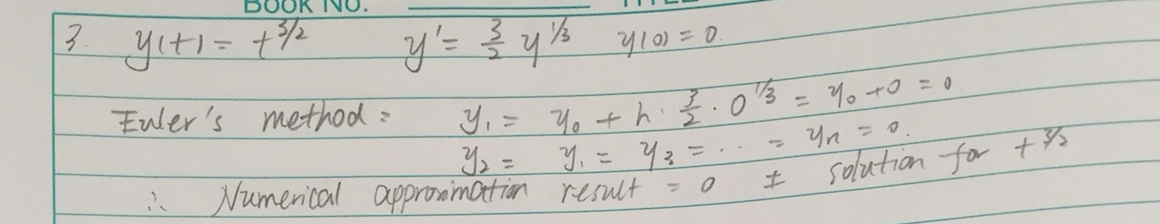 BOOK NO.
3. y(t) = t^3/2 y' = 3/2 y^1/3 y(0) = 0.
Euler's method: y₁ = y₀ + h · 3/2 · 0^1/3 = y₀ + 0 = 0
y₂ = y₁ = y₃ = ... = yn = 0.
∴ Numerical approximation result = 0 ≠ solution for t^3/2